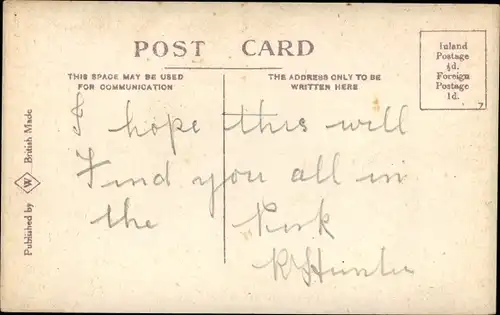 POST CARD
THIS SPACE MAY BE USED
FOR COMMUNICATION
THE ADDRESS ONLY TO BE
WRITTEN HERE
Inland
Postage
½d.
Foreign
Postage
1d.
I hope this will
Find you all in
the Pink
R Hunter
Published by W British Made
7